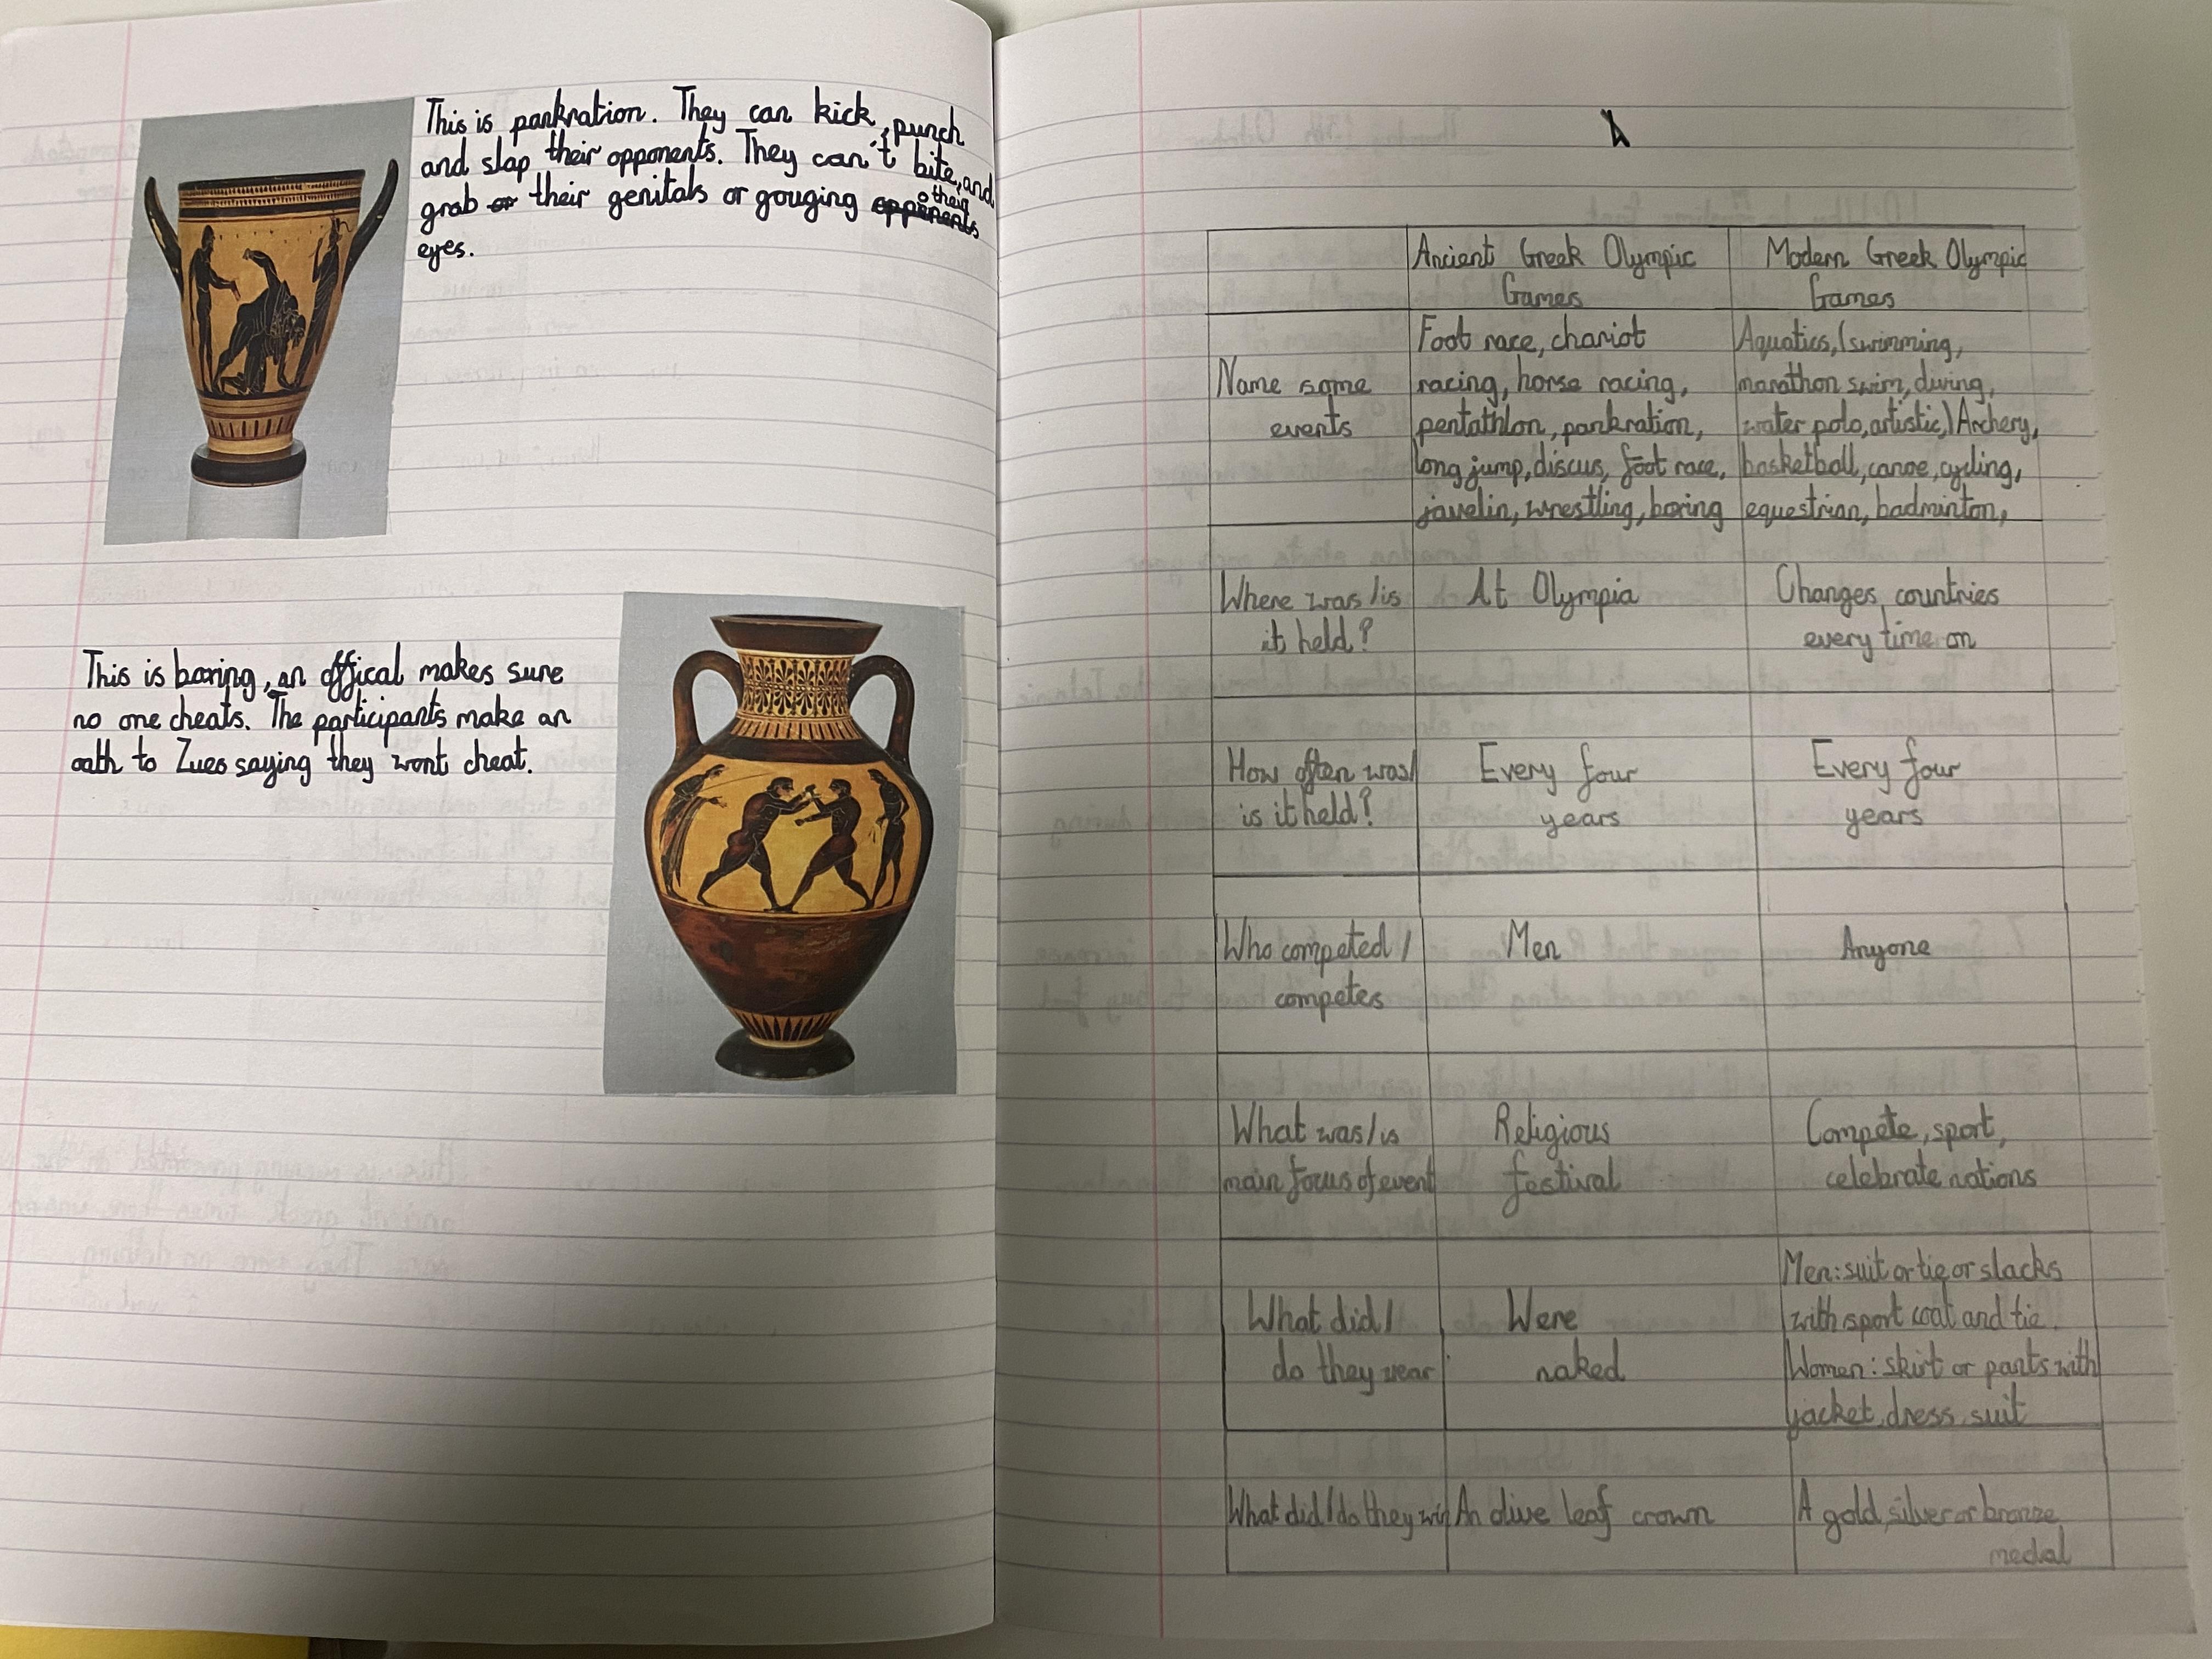 This is pankration. They can kick, punch
and slap their opponents. They can't bite, and
grab or their genitals or gouging opponents their
eyes.
This is boxing, an offical makes sure
no one cheats. The participants make an
oath to Zues saying they wont cheat.
Ancient Greek Olympic
Games
Modern Greek Olympic
Games
Name some
events
Foot race, chariot
racing, horse racing,
pentathlon, pankration,
long jump, discus, foot race,
javelin, wrestling, boxing
Aquatics, (swimming,
marathon swim, diving,
water polo, artistic,) Archery,
basketball, canoe, cycling,
equestrian, badminton,
Where was/is
it held?
At Olympia
Changes countries
every time on
How often was/
is it held?
Every four
years
Every four
years
Who competed/
competes
Men
Anyone
What was/is
main focus of event
Religious
festival
Compete, sport,
celebrate nations
What did/
do they wear
Were
naked
Men: suit or tie or slacks
with sport coat and tie.
Women: skirt or pants with
jacket, dress, suit
What did/do they win
An olive leaf crown
A gold, silver or bronze
medal